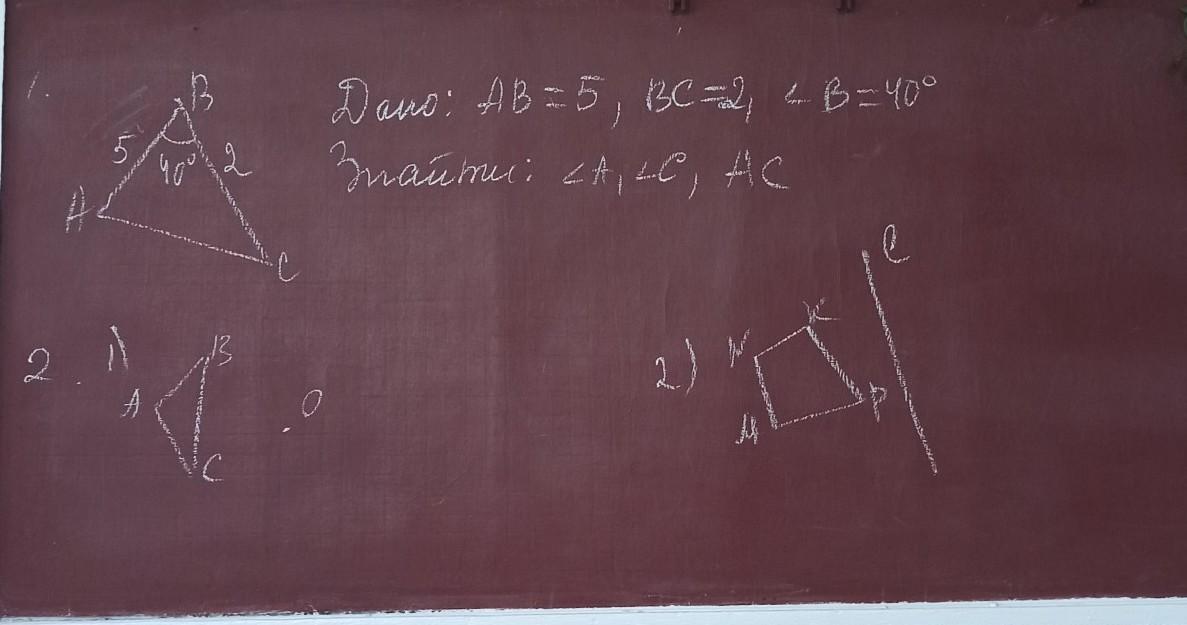 1.
B
5
40°
2
A
C
Дано: AB=5, BC=2, ∠B=40°
Знайти: ∠A, ∠C, AC
2. 1)
B
A
C
O
2)
N
K
M
P
C